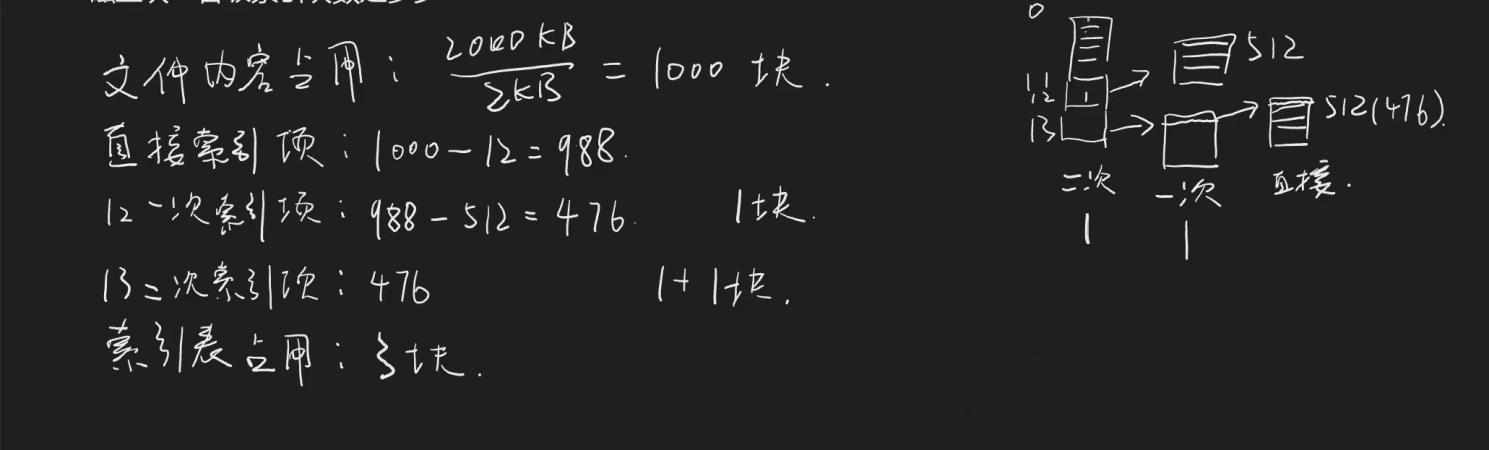 文件内容占用： 2000KB / 2KB = 1000 块.
直接索引项：1000-12=988.
12 一次索引项：988-512=476. 1块.
13 二次索引项：476 1+1块.
索引表占用：3块.
0
11
12
13
512
512(476).
二次
一次
直接.
1
1